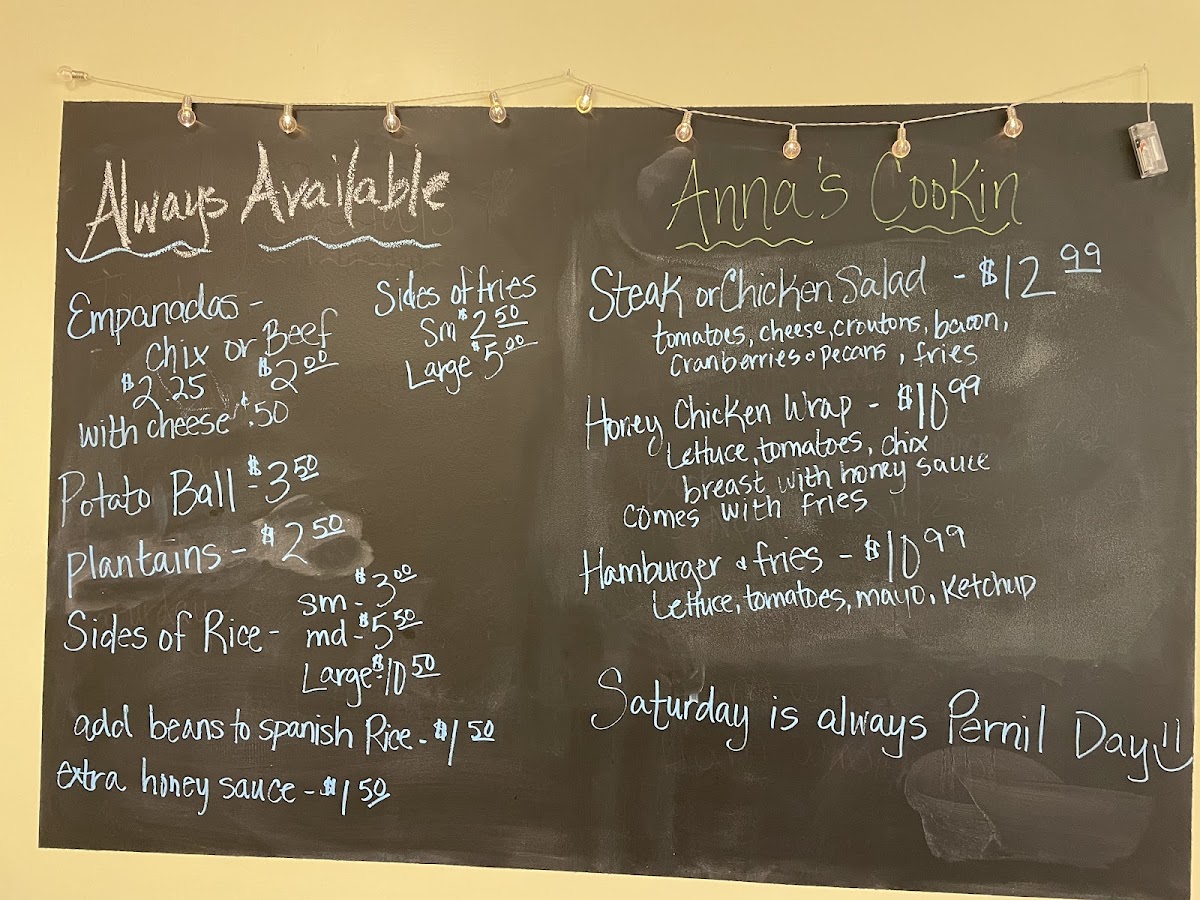 Always Available
Empanadas -
Chix or Beef
$2.25 $2.00
with cheese ¢.50
Sides of fries
Sm $2.50
Large $5.00
Potato Ball - $3.50
Plantains - $2.50
Sides of Rice -
sm - $3.00
md - $5.50
Large - $10.50
add beans to spanish Rice - $1.50
extra honey sauce - $1.50
Anna's Cookin
Steak or Chicken Salad - $12.99
tomatoes, cheese, croutons, bacon,
Cranberries & pecans, fries
Honey Chicken Wrap - $10.99
Lettuce, tomatoes, chix
breast with honey sauce
comes with fries
Hamburger & fries - $10.99
Lettuce, tomatoes, mayo, Ketchup
Saturday is always Pernil Day